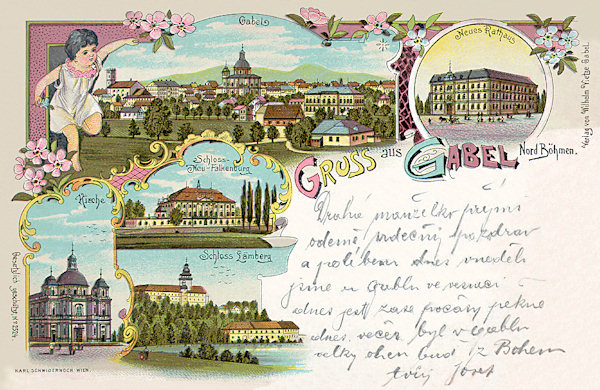 Gabel
Neues Rathaus
Verlag von Wilhelm Tietze Gabel.
Gruss aus Gabel
Nord Böhmen.
Schloss-
Neu-Falkenburg
Kirche
Schloss Lämberg
Gesetzlich geschützt
KARL SCHWIDERNOCH, WIEN.
Drahé manželko přijmi
odemě srdečný pozdrav
a políbení dnes
jsme u Gablu ve
dnes jest zase počasy pěkné
dnes, večer byl v Gablu
velky oheň buď z Bohem
tvůj Josef